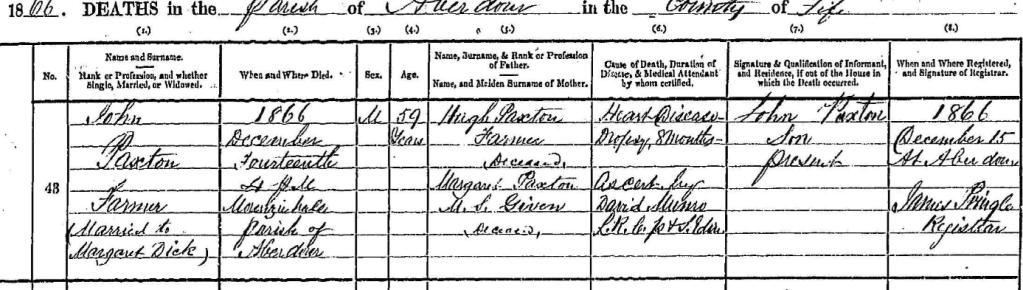 1866. DEATHS in the Parish of Aberdour in the County of Fife
(1.) (2.) (3.) (4.) (5.) (6.) (7.) (8.)
No.
Name and Surname.
Rank or Profession, and whether
Single, Married, or Widowed.
When and Where Died.
Sex.
Age.
Name, Surname, & Rank or Profession
of Father.
Name, and Maiden Surname of Mother.
Cause of Death, Duration of
Disease, & Medical Attendant
by whom certified.
Signature & Qualification of Informant,
and Residence, if out of the House in
which the Death occurred.
When and Where Registered,
and Signature of Registrar.
43
John
Paxton
Farmer
(Married to
Margaret Dick)
1866
December
Fourteenth
4h PM
Parish of
Aberdour
M
59
Years
Hugh Paxton
Farmer
Deceased,
Margaret Paxton
M.S. Given
Deceased,
Heart Disease
Dropsy, 8 months
As cert by
David Munro
John Paxton
Son
present
1866
December 15
At Aberdour
James Pringle
Registrar